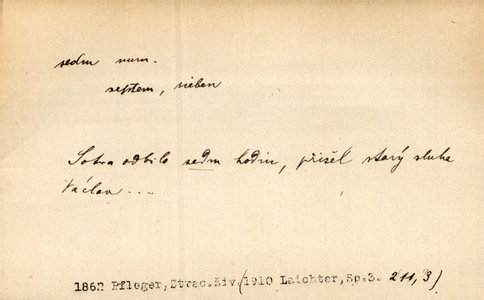 sedm num.
septem, sieben
Sotva odbilo sedm hodin, přišel starý sluha
Václav...
1862 Pfleger, Ztrac.živ.(1910 Laichter, Sp.3. 211,3)